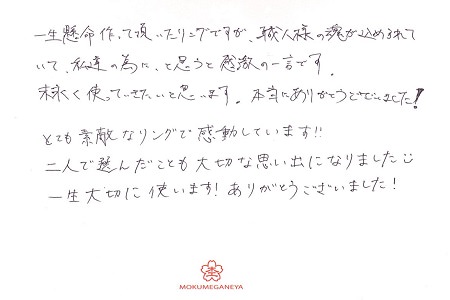 一生懸命作って頂いたリングですが、職人様の魂が込められて
いて、私達の為に、と思うと感激の一言です。
末永く使っていきたいと思います。本当にありがとうございました!
とても素敵なリングで感動しています!!
二人で選んだことも大切な思い出になりました
一生大切に使います!ありがとうございました!
MOKUMEGANEYA